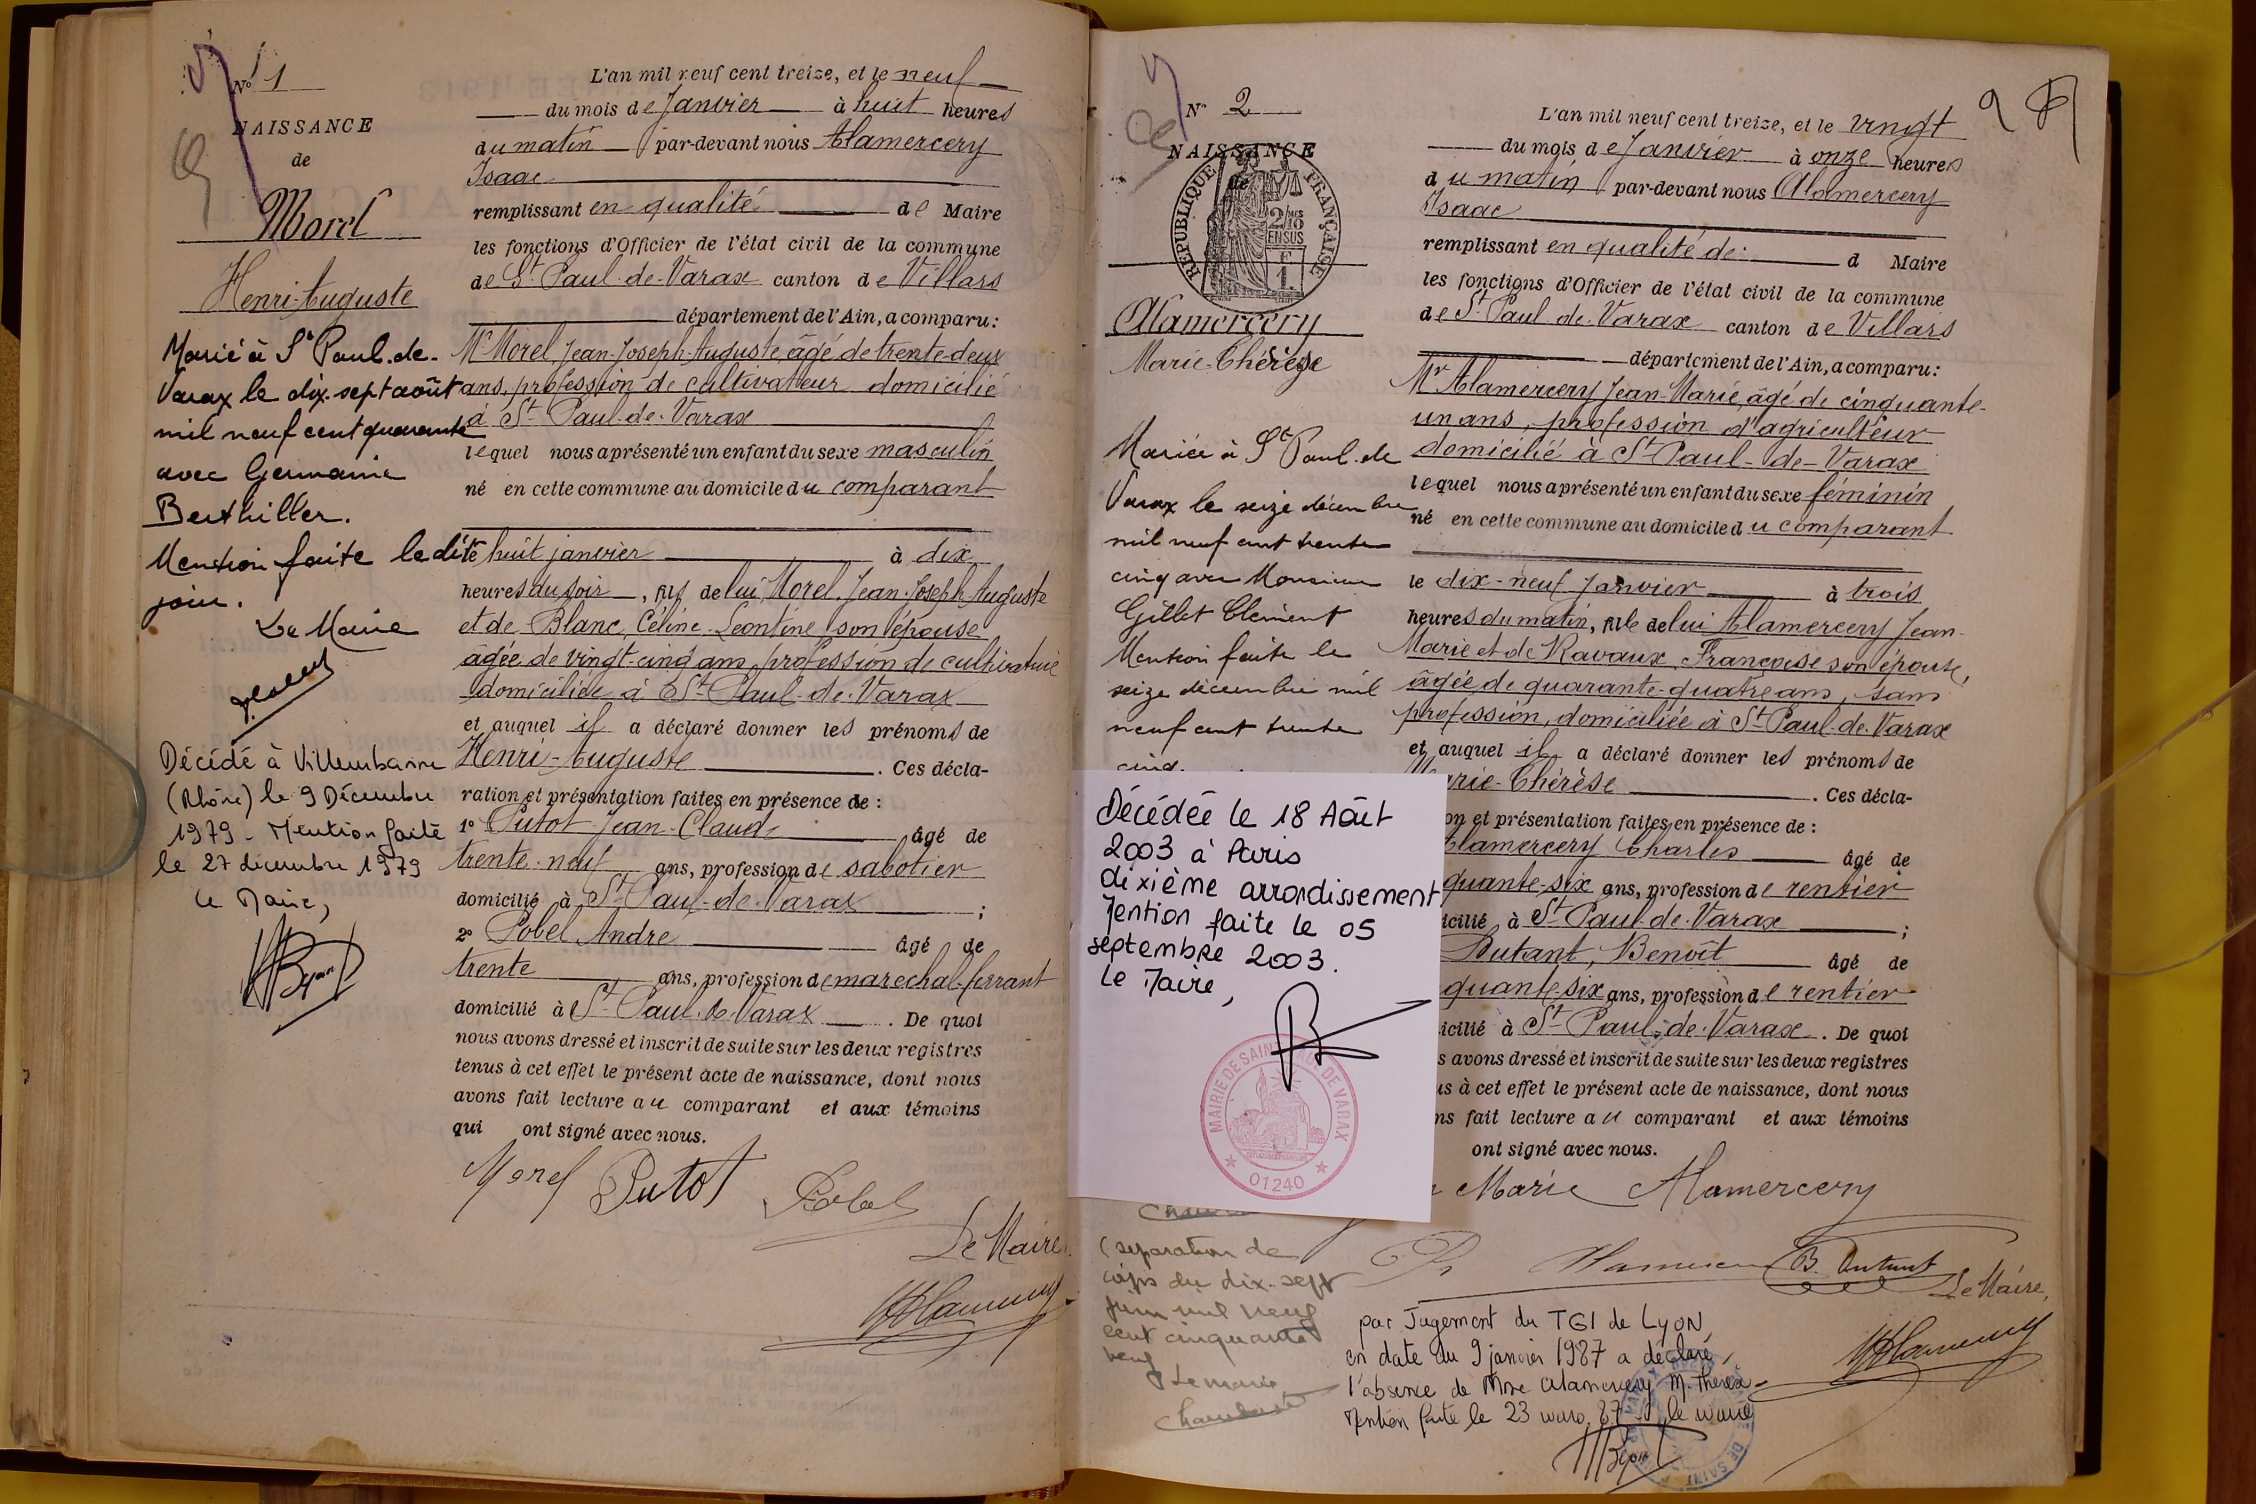 N° 1
NAISSANCE
de
Morel
Henri-Auguste
Marié à St Paul-de-
Varax le dix-sept août
mil neuf cent quarante
avec Germaine
Berthillier.
Mention faite le dit
jour.
Le Maire
Décédé à Villeurbanne
(Rhône) le 9 Décembre
1979 - Mention faite
le 27 décembre 1979
le Maire,
L'an mil neuf cent treize, et le neuf
du mois de Janvier à huit heures
du matin par-devant nous Alamercery
Isaac
remplissant en qualité de Maire
les fonctions d'Officier de l'état civil de la commune
de St Paul-de-Varax canton de Villars
département de l'Ain, a comparu:
Mr Morel Jean-Joseph-Auguste, âgé de trente-deux
ans, profession de cultivateur domicilié
à St Paul-de-Varax
lequel nous a présenté un enfant du sexe masculin
né en cette commune au domicile du comparant
le huit janvier à dix
heures du soir, fils de lui Morel Jean-Joseph Auguste
et de Blanc, Céline-Léontine son épouse
âgée de vingt-cinq ans, profession de cultivatrice
domiciliée à St Paul-de-Varax
et auquel il a déclaré donner les prénoms de
Henri-Auguste. Ces décla-
ration et présentation faites en présence de :
1° Putot Jean-Claude âgé de
trente-neuf ans, profession de sabotier
domicilié à St Paul-de-Varax ;
2° Pobel André âgé de
trente ans, profession de maréchal-ferrant
domicilié à St Paul-de-Varax. De quoi
nous avons dressé et inscrit de suite sur les deux registres
tenus à cet effet le présent acte de naissance, dont nous
avons fait lecture au comparant et aux témoins
qui ont signé avec nous.
Morel Putot Pobel
Le Maire
N° 2
NAISSANCE
de
REPUBLIQUE FRANÇAISE
2/10 EN SUS
Alamercery
Marie-Thérèse
Mariée à St Paul-de
Varax le seize décembre
mil neuf cent trente
cinq avec Monsieur
Gillet Clément
Mention faite le
seize décembre mil
neuf cent trente
cinq.
Décédée le 18 Août
2003 à Paris
dixième arrondissement
Mention faite le 05
septembre 2003.
Le Maire,
MAIRIE DE SAINT PAUL DE VARAX
01240
(separation de
corps du dix-sept
juin mil neuf
cent cinquante
neuf
Le maire
2
L'an mil neuf cent treize, et le vingt
du mois de Janvier à onze heures
du matin par-devant nous Alamercery
Isaac
remplissant en qualité de: d Maire
les fonctions d'Officier de l'état civil de la commune
de St Paul-de-Varax canton de Villars
département de l'Ain, a comparu:
Mr Alamercery Jean-Marie, âgé de cinquante-
un ans, profession d'agriculteur
domicilié à St Paul-de-Varax
lequel nous a présenté un enfant du sexe féminin
né en cette commune au domicile du comparant
le dix-neuf Janvier à trois
heures du matin, fille de lui Alamercery Jean-
Marie et de Ravaux, Françoise son épouse,
âgée de quarante-quatre ans, sans
profession, domiciliée à St Paul-de-Varax
et auquel il a déclaré donner les prénoms de
Marie-Thérèse. Ces décla-
on et présentation faites en présence de :
Alamercery Charles âgé de
quante-six ans, profession de rentier
icilié à St Paul-de-Varax ;
Dutant, Benoît âgé de
quante-six ans, profession de rentier
icilié à St Paul-de-Varax. De quoi
s avons dressé et inscrit de suite sur les deux registres
us à cet effet le présent acte de naissance, dont nous
ns fait lecture au comparant et aux témoins
ont signé avec nous.
Marie Alamercery
B. Dutant
Le Maire,
par Jugement du TGI de Lyon,
en date du 9 janvier 1987 a déclaré
l'absence de Mme Alamercery M. Thérèse
Mention faite le 23 mars 87 le maire